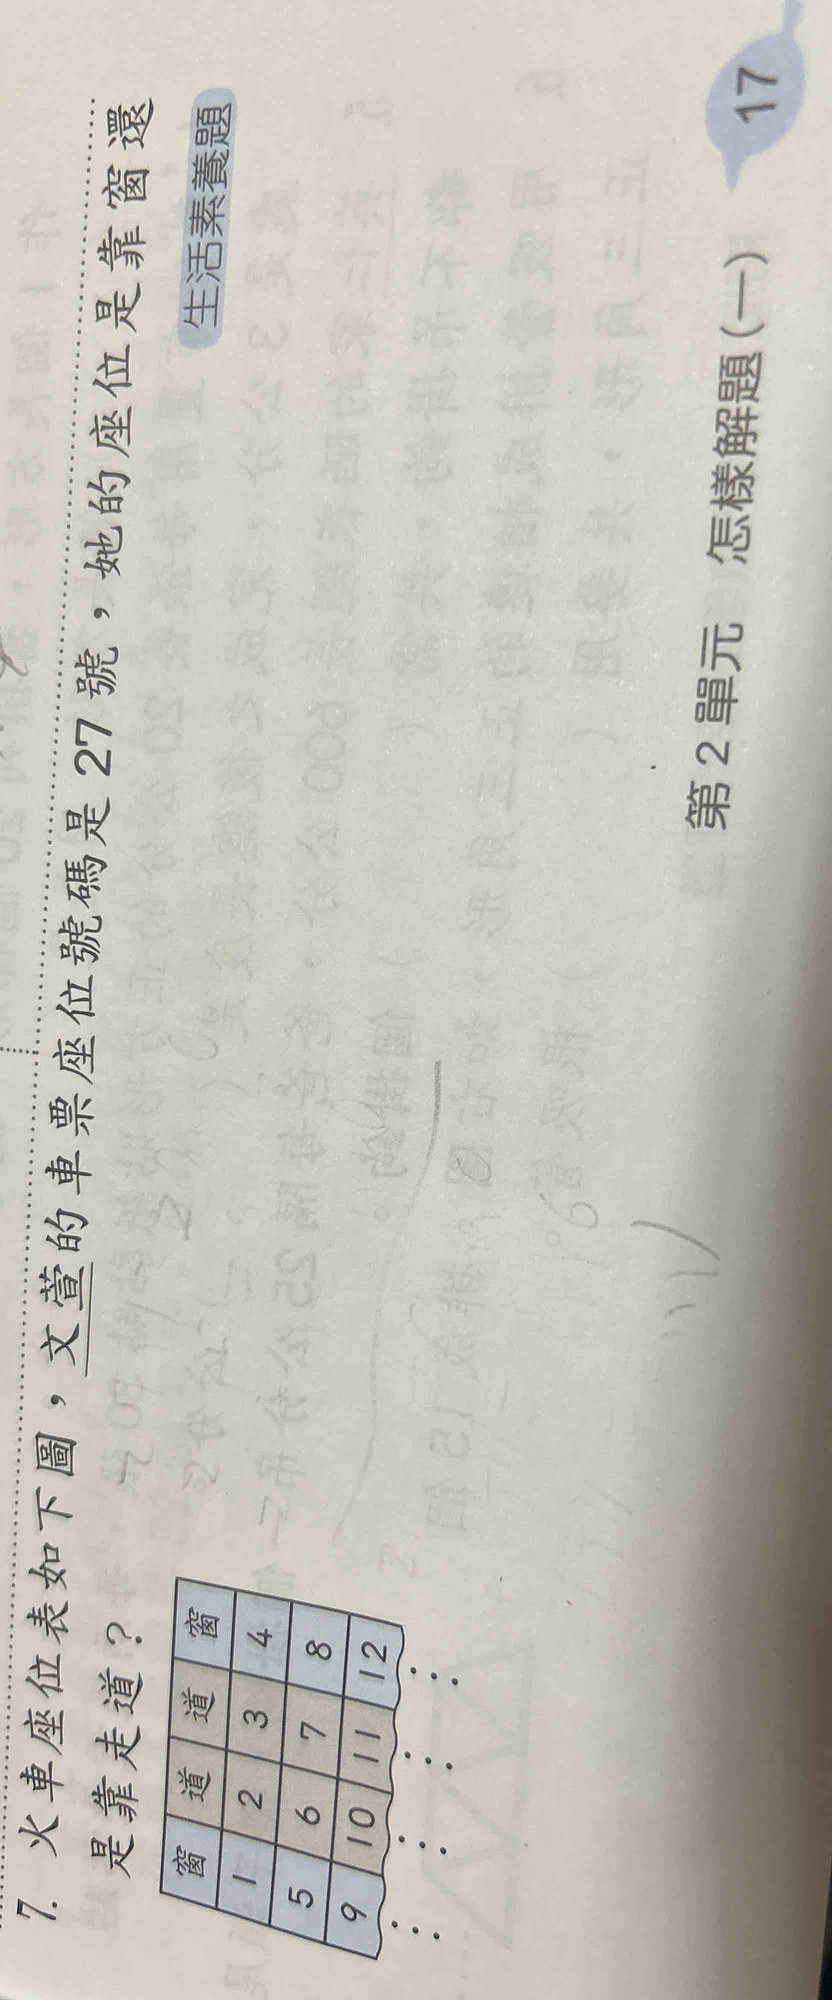 7. 火車座位表如下圖，文萱的車票座位號碼是 27 號，她的座位是靠窗還
是靠走道？
生活素養題
窗 道 道 窗
1 2 3 4
5 6 7 8
9 10 11 12
第 2 單元 怎樣解題(一) 17